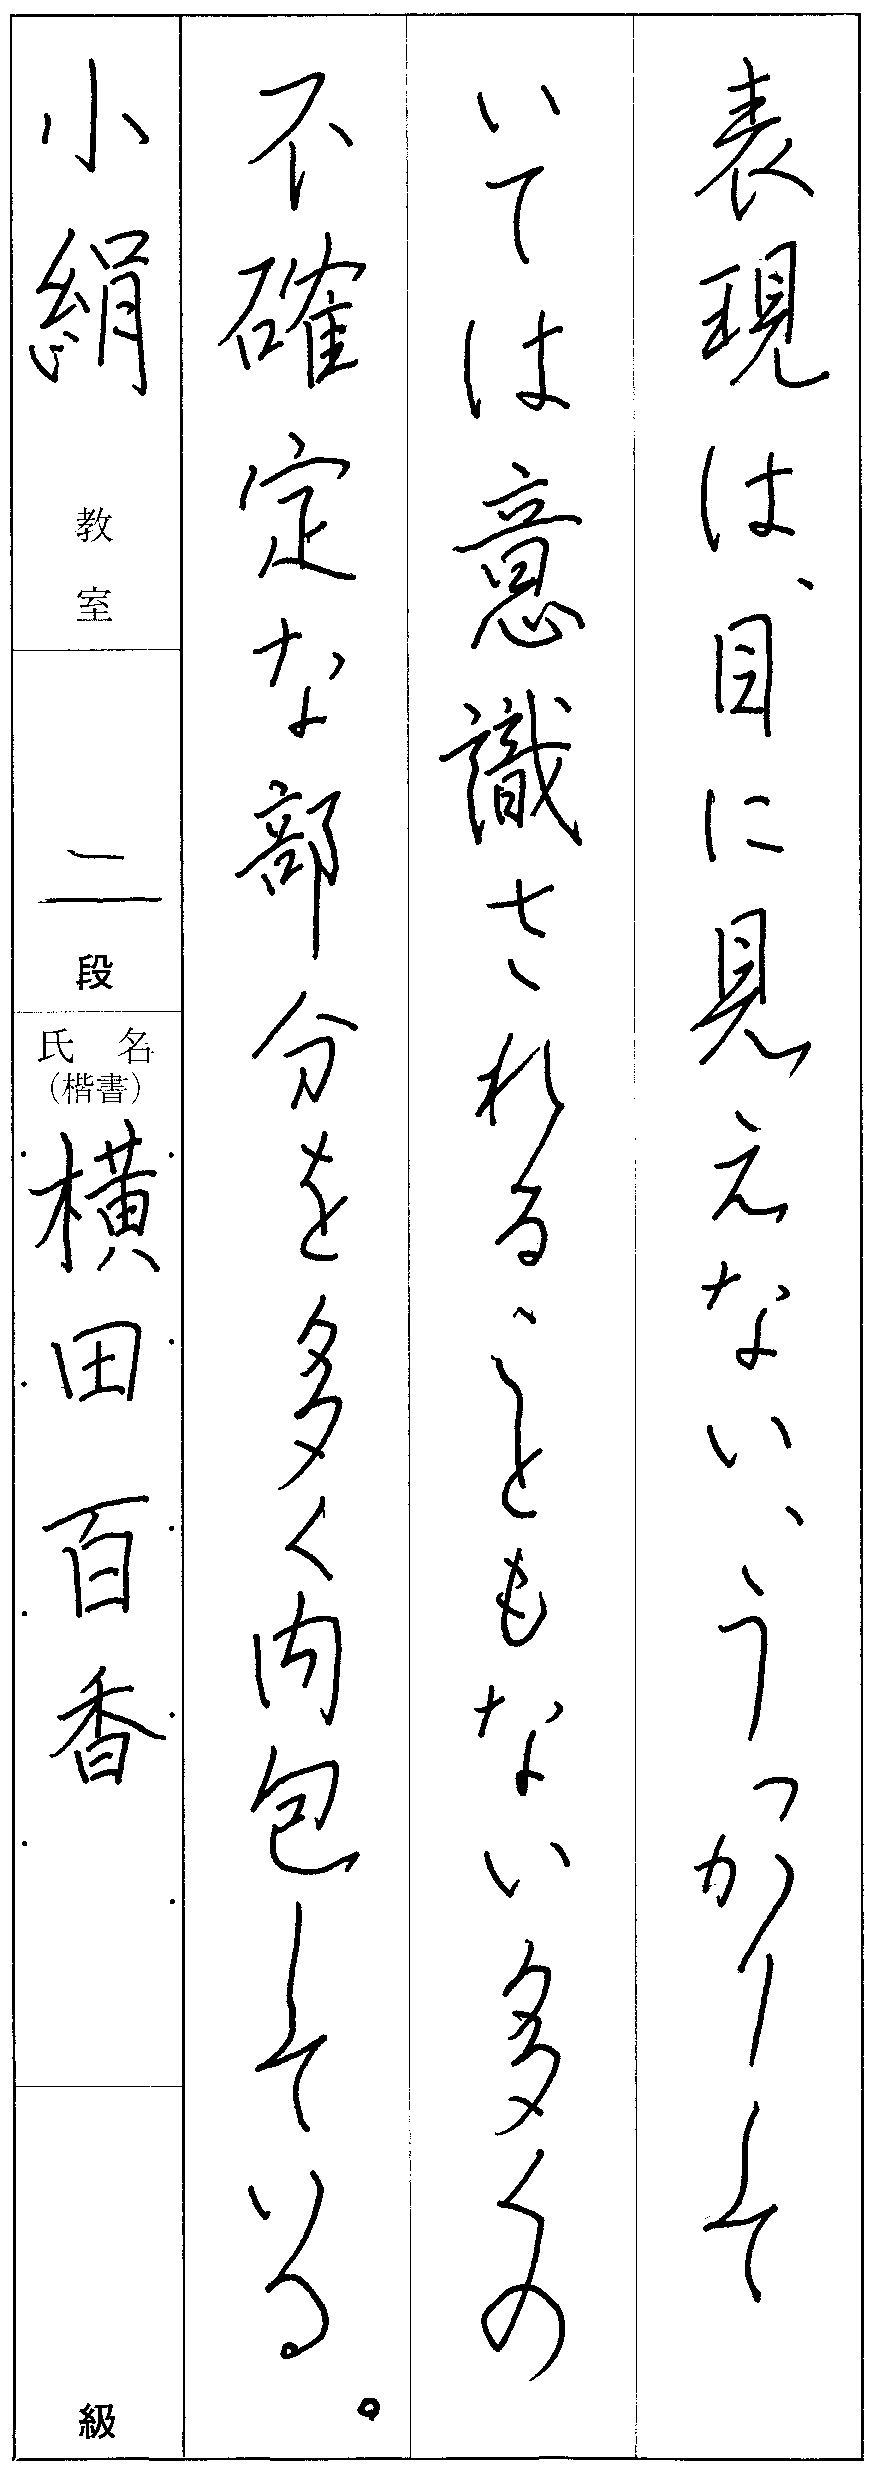 表現は、目に見えない、うっかりして
いては意識されることもない多くの
不確定な部分を多く内包している。
小絹 教室
二 段
氏 名
(楷書)
横田百香
級